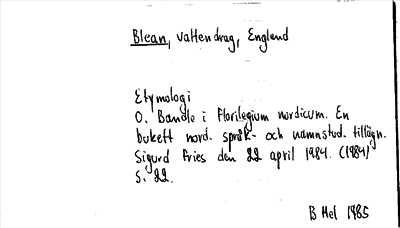 Blean, vattendrag, England
Etymologi
O. Bandle i Florilegium nordicum. En
bukett nord. språk- och namnstud. tillägn.
Sigurd Fries den 22 april 1984. (1984)
S. 22.
B Mel 1985